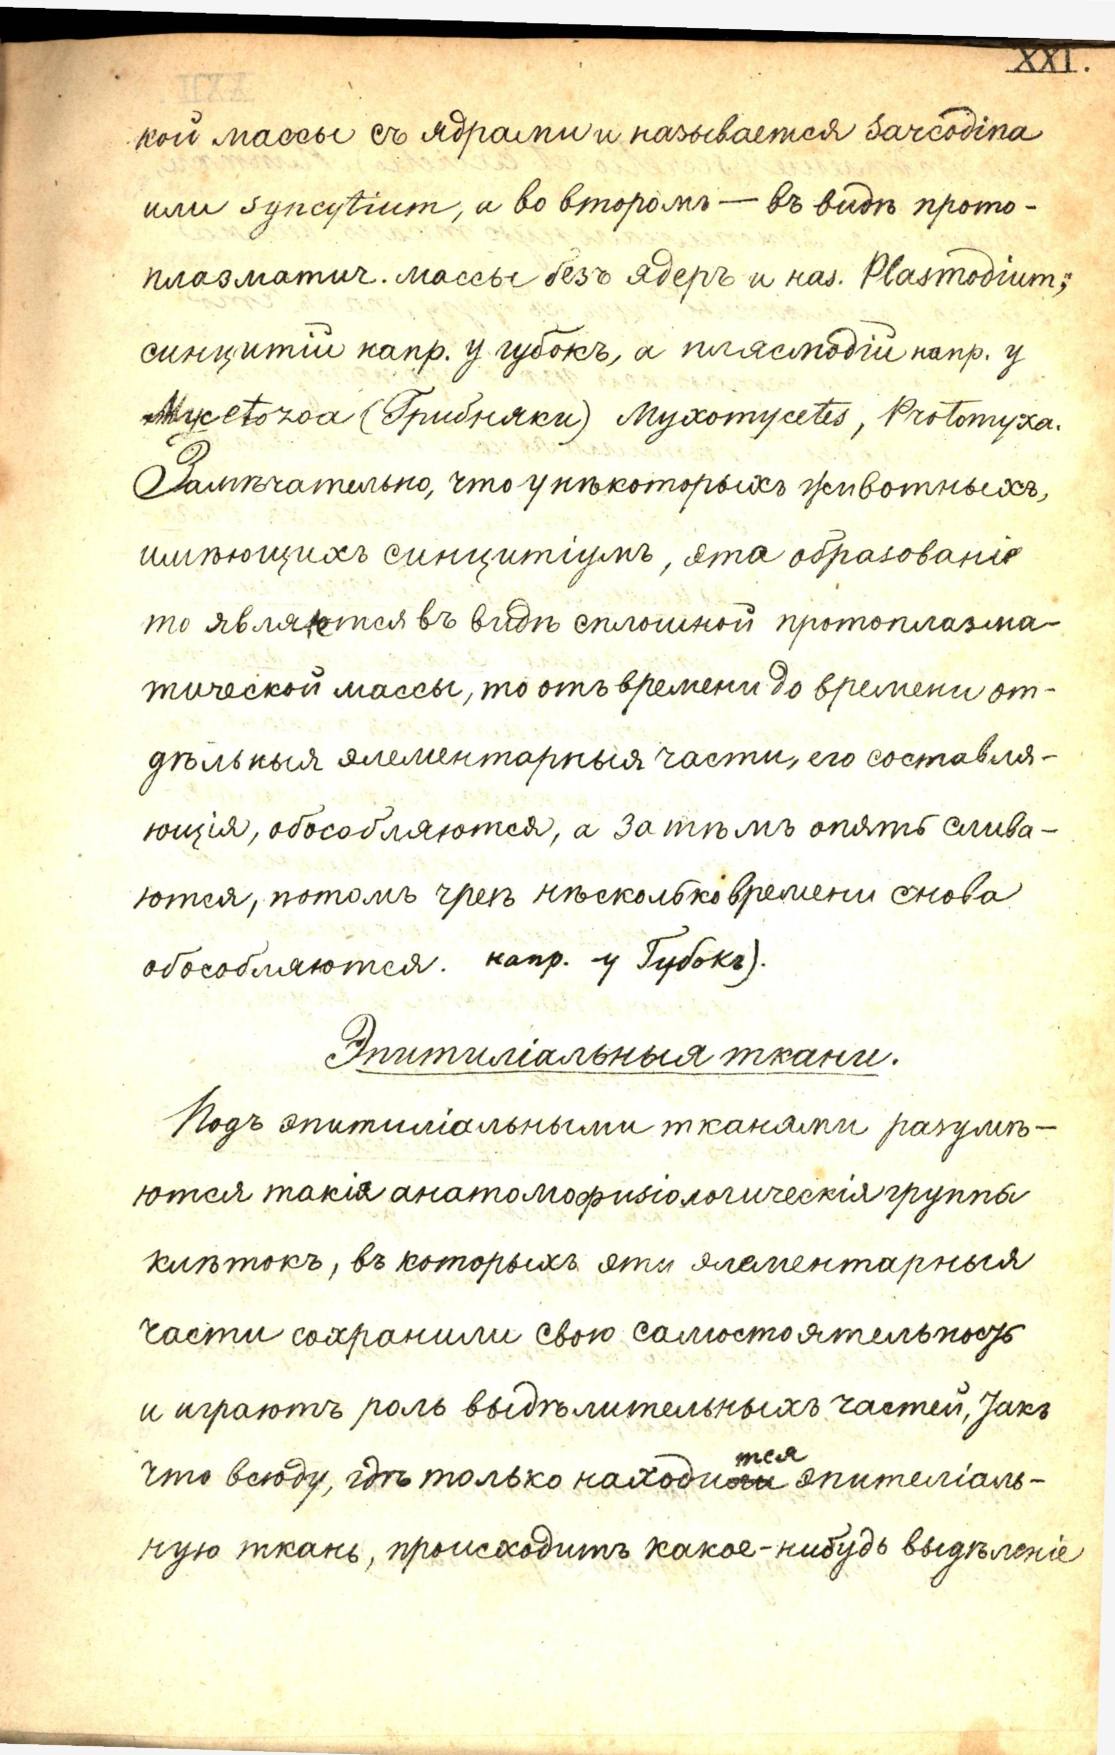 XXI.
кой массы съ ядрами и называется Sarcodina
или syncytium, и во второмъ — въ видѣ прото-
плазматич. массы безъ ядеръ и наз. Plasmodium;
синцитій напр. у губокъ, а плясмодій напр. у
Mycetozoa (Грибняки) Myxomycetes, Protomyxa.
Замѣчательно, что у нѣкоторыхъ животныхъ,
имѣющихъ синцитіумъ, эта образованіе
то являются въ видѣ сплошной протоплазма-
тической массы, то отъ времени до времени от-
дѣльныя элементарныя части, его составля-
ющія, обособляются, а затѣмъ опять слива-
ются, потомъ чрезъ нѣсколько времени снова
обособляются. напр. у Губокъ).
Эпитиліальныя ткани.
Подъ эпитиліальными тканями разумѣ-
ются такія анатомофизіологическія группы
клѣтокъ, въ которыхъ эти элементарныя
части сохранили свою самостоятельность
и играютъ роль выдѣлительныхъ частей, Такъ
что всюду, гдѣ только находится эпителіаль-
ную ткань, происходитъ какое-нибудь выдѣленіе